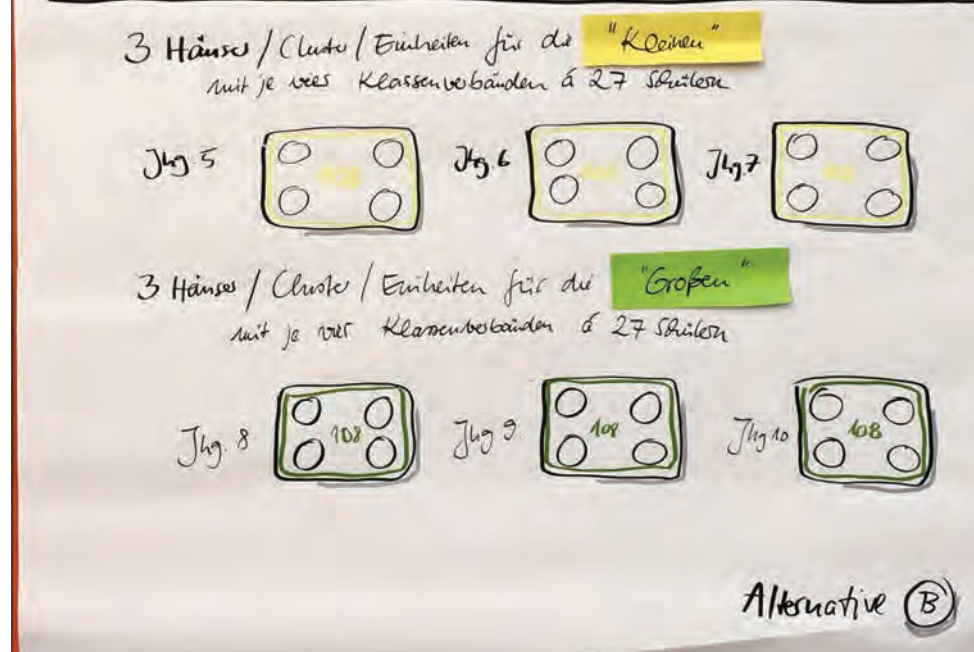 3 Häuser / Cluster / Einheiten für die "Kleinen"
mit je vier Klassenverbänden á 27 Schülern
Jhg. 5 108 Jhg. 6 108 Jhg. 7 108
3 Häuser / Cluster / Einheiten für die "Großen"
mit je vier Klassenverbänden á 27 Schülern
Jhg. 8 108 Jhg 9 108 Jhg 10 108
Alternative B